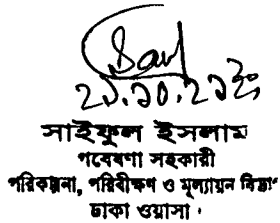 ২১.১০.২১ইং
সাইফুল ইসলাম
গবেষণা সহকারী
পরিকল্পনা, পরিবীক্ষণ ও মূল্যায়ন বিভাগ
ঢাকা ওয়াসা।